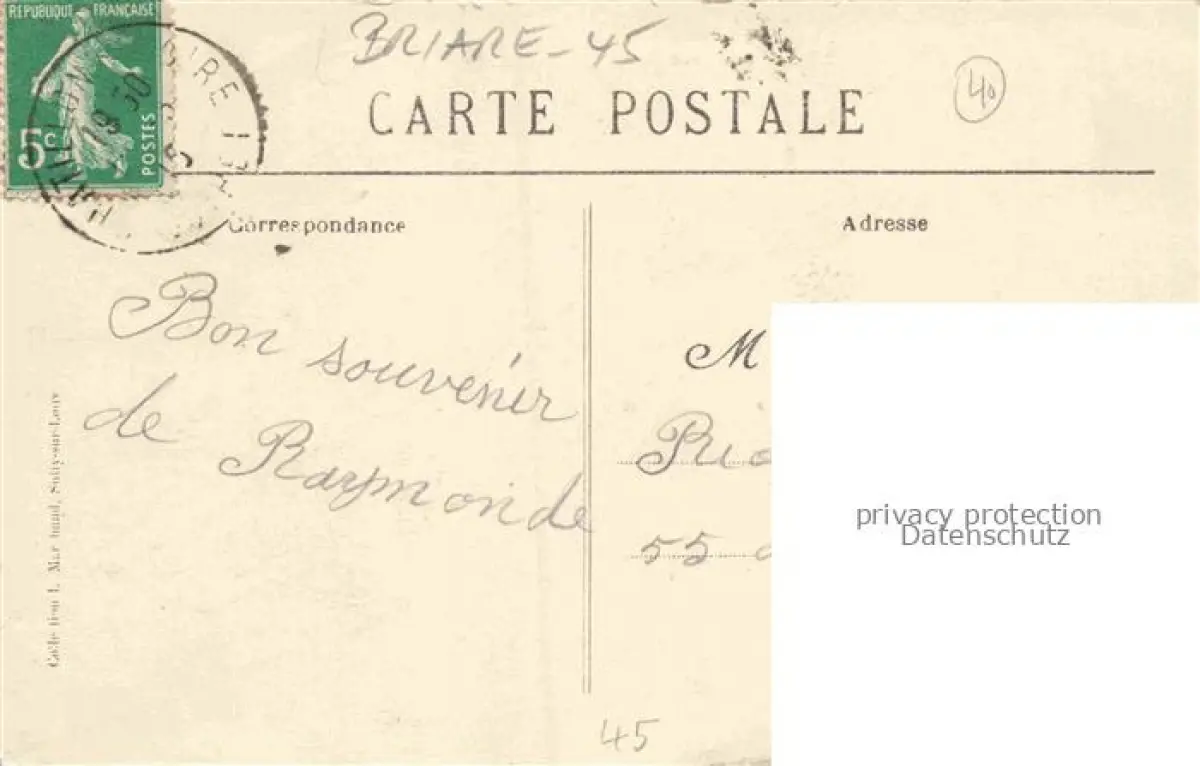 REPUBLIQUE FRANÇAISE
5c
POSTES
BRIARE-45
CARTE POSTALE
40
Correspondance
Adresse
Bon souvenir
de Raymonde
M
55
45
privacy protection
Datenschutz